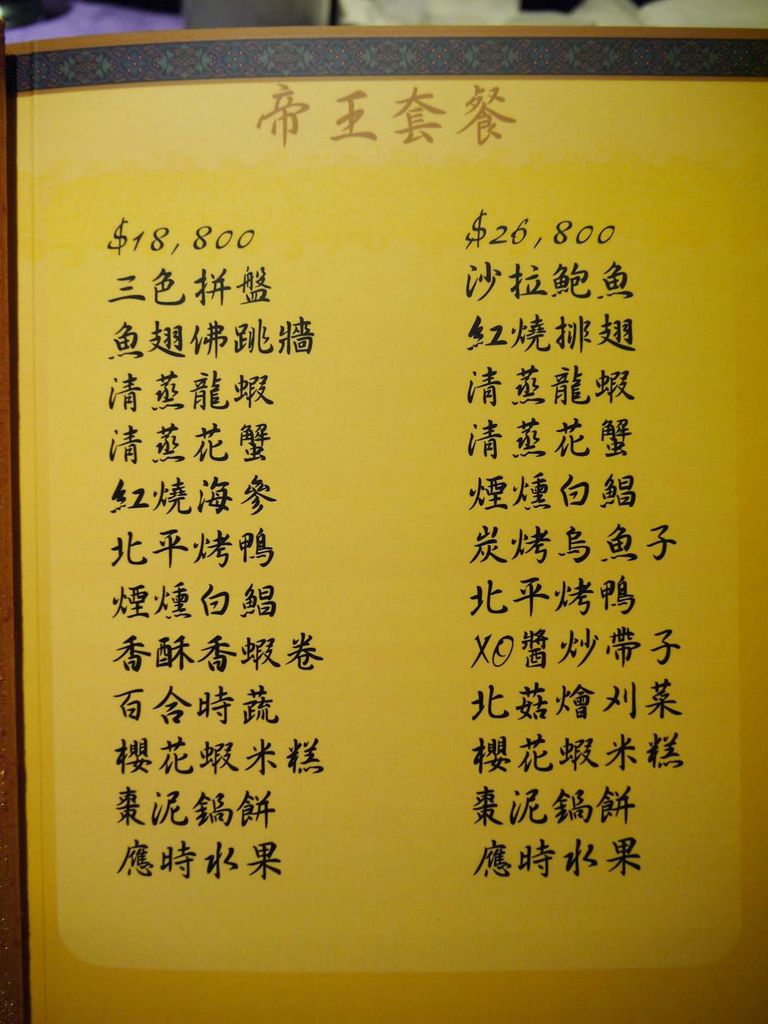 帝王套餐
$18,800
三色拼盤
魚翅佛跳牆
清蒸龍蝦
清蒸花蟹
紅燒海參
北平烤鴨
煙燻白鯧
香酥香蝦卷
百合時蔬
櫻花蝦米糕
棗泥鍋餅
應時水果
$26,800
沙拉鮑魚
紅燒排翅
清蒸龍蝦
清蒸花蟹
煙燻白鯧
炭烤烏魚子
北平烤鴨
XO醬炒帶子
北菇燴刈菜
櫻花蝦米糕
棗泥鍋餅
應時水果